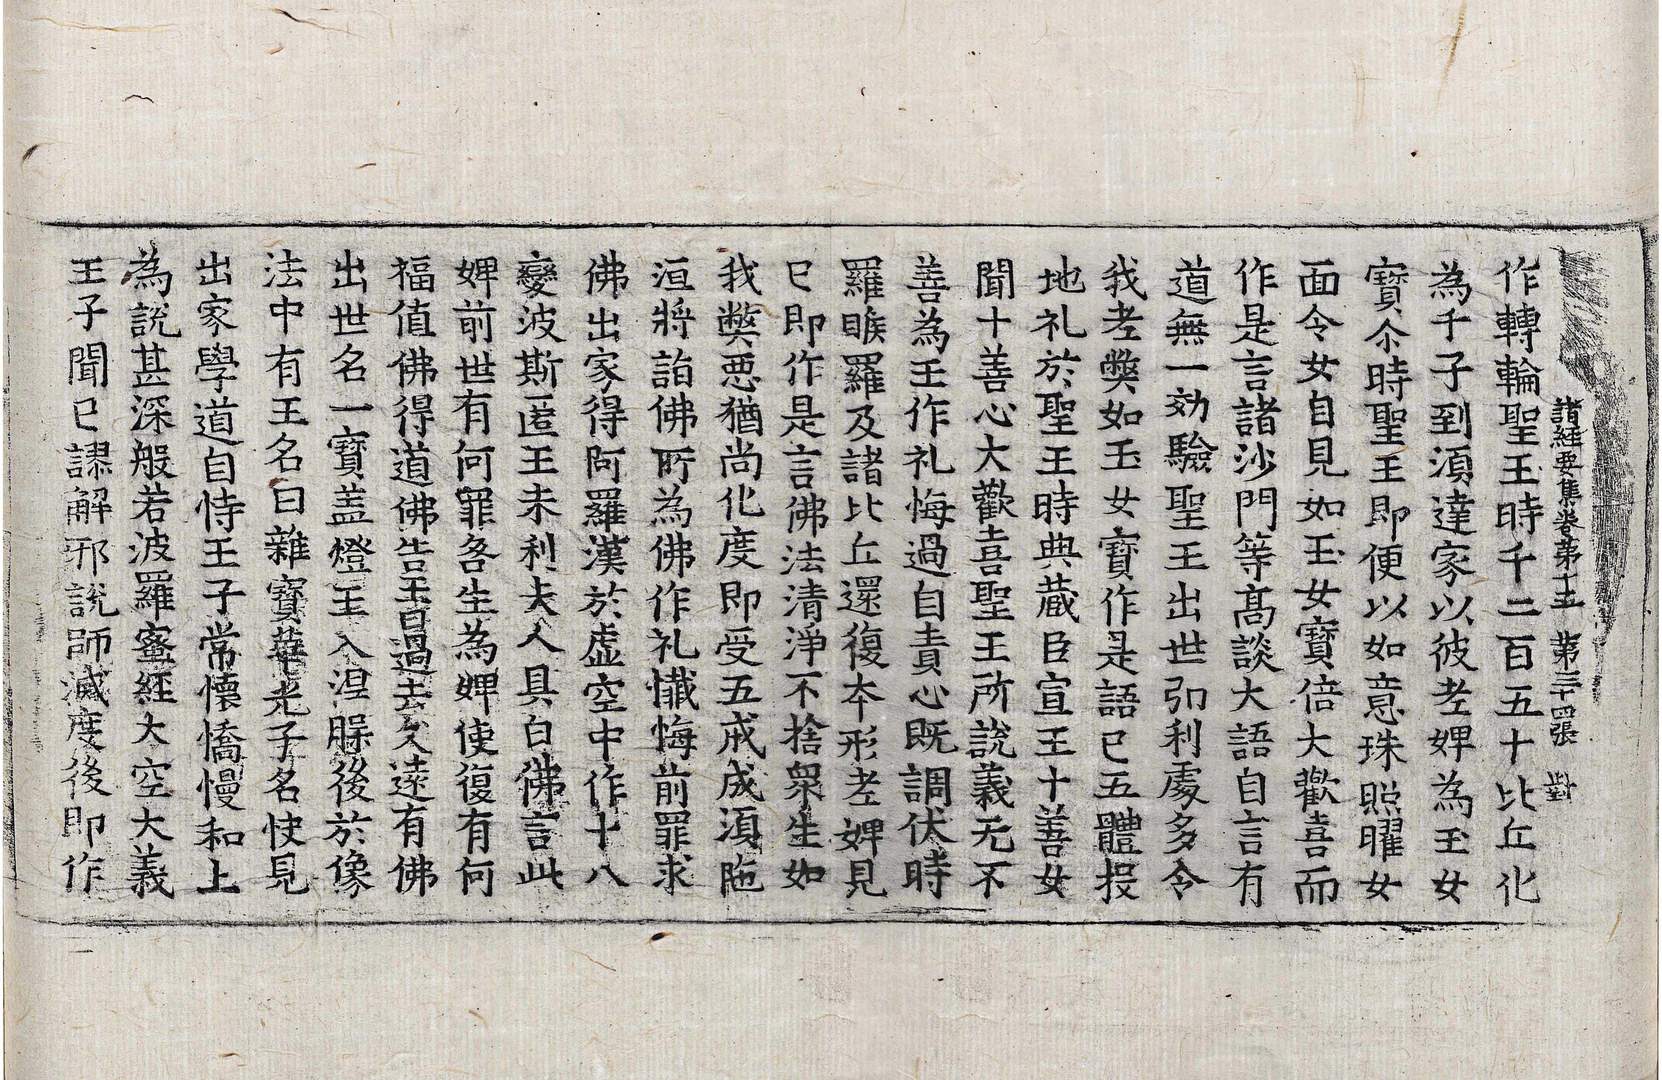 諸經要集卷第十五 第三十四張 對
作轉輪聖王時千二百五十比丘化
為千子到湏達家以彼老婢為玉女
寶尒時聖王即便以如意珠照曜女
面令女自見如玉女寶倍大歡喜而
作是言諸沙門等髙談大語自言有
道無一効驗聖王出世弘利處多令
我老弊如玉女寶作是語已五體投
地礼於聖王時典蔵臣宣王十善女
聞十善心大歡喜聖王所說義无不
善為王作礼悔過自責心既調伏時
羅睺羅及諸比丘還復本形老婢見
已即作是言佛法清淨不捨衆生如
我弊惡猶尚化度即受五戒成湏陁
洹將詣佛所為佛作礼懺悔前罪求
佛出家得阿羅漢於虛空中作十八
變波斯匿王末利夫人具白佛言此
婢前世有何罪咎生為婢使復有何
福值佛得道佛告王曰過去久遠有佛
出世名一寶盖燈王入涅槃後於像
法中有王名曰雜寶華光子名快見
出家學道自恃王子常懷憍慢和上
為說甚深般若波羅蜜經大空大義
王子聞已謬解邪說師滅度後即作